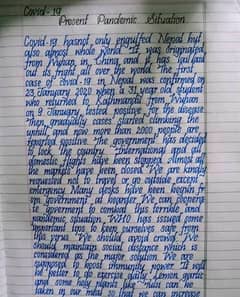 Covid-19
Present Pandemic Situation
Covid-19 hasnot only engulfed Nepal but
also almost whole world. It was originated
from Wuhan in China and it has spread
out its fright all over the world. The first
case of covid-19 in Nepal was confirmed on
23 January 2020 when a 31 year old student
who returned to Kathmandu from Wuhan
on 9 January, tested positive for the disease
Then gradually cases started climbing the
uphill and now more than 2000 people are
reported positive. The government has decided
to lock the country. International and all
domestic flights have been stopped. Almost all
the markets have been closed. We are kindly
requested not to travel or go outside except
emergency. Many tasks have been begun
government at boarder. We can
government to combat this terrible and
pandemic situation. WHO has issued some
important tips to keep ourselves safe from
this virus. We should avoid crowd. We
should maintain social distance which is
considered as the major solution. We are
supposed to boost immunity power. It will
be better to go exercise daily. Lemon, garlic
and some holy plants like can be
taken in our meal so that we can increase